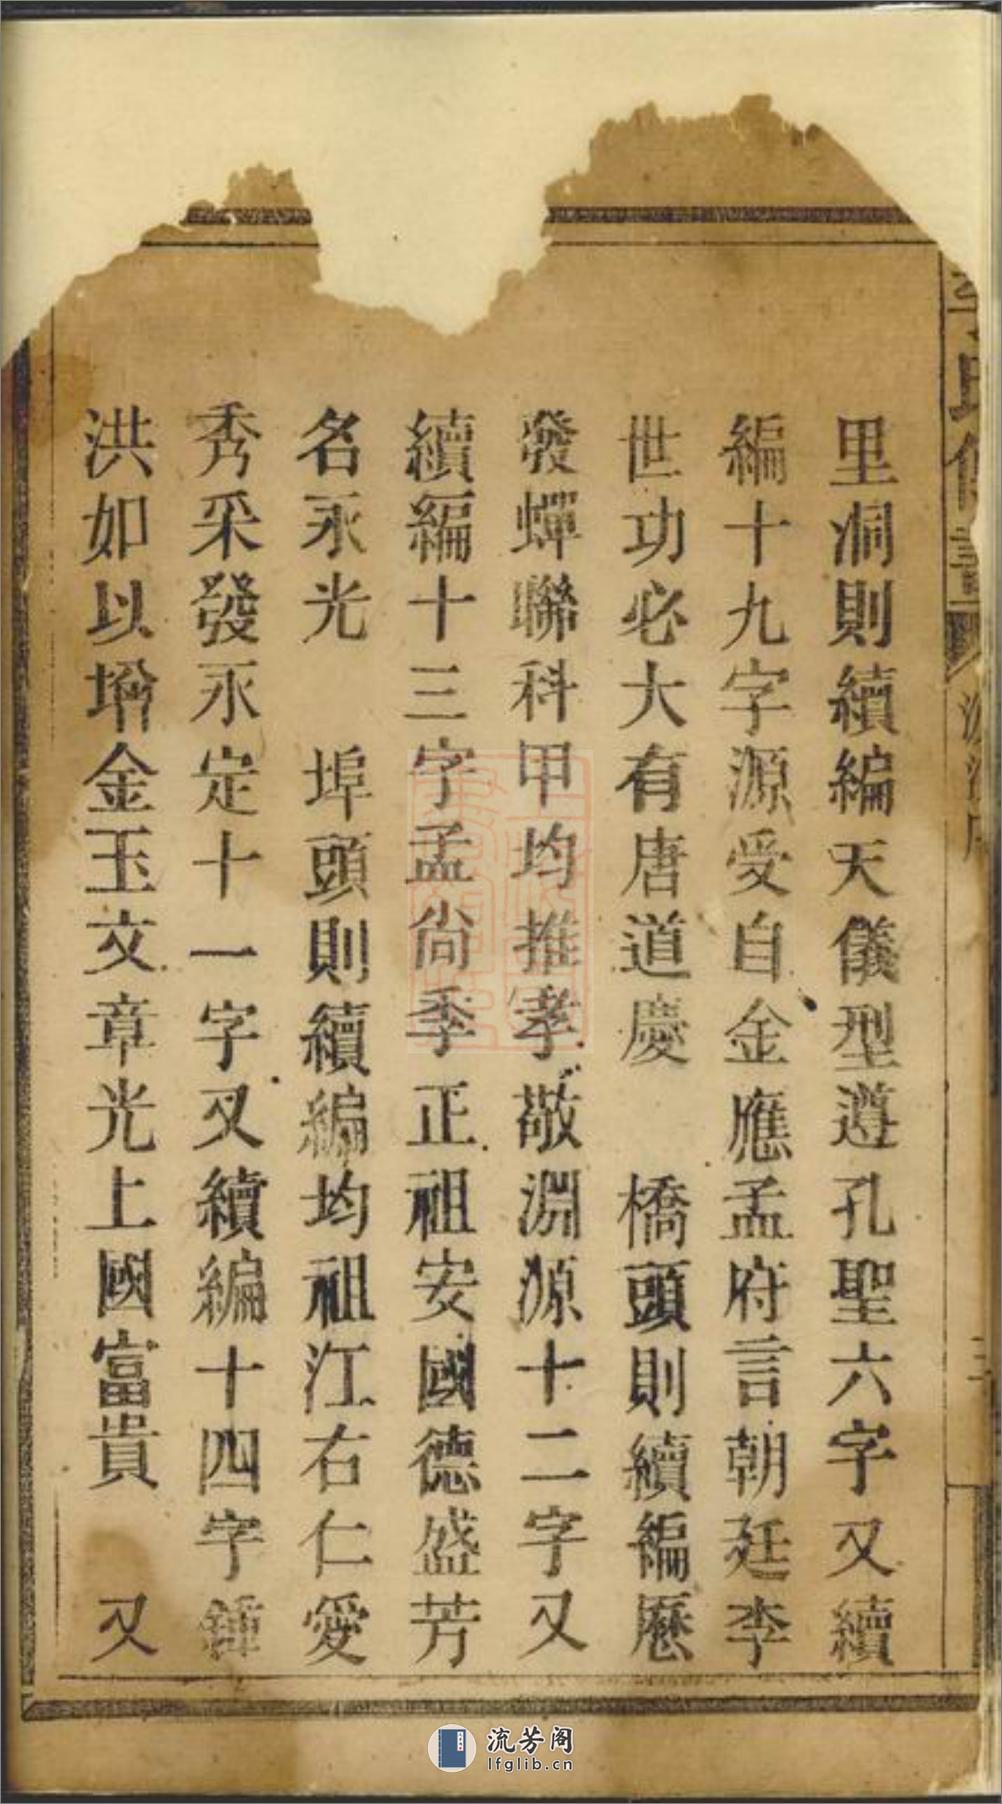 里洞則續編天儀型遵孔聖六字又續
編十九字源受自金應孟府言朝廷李
世功必大有唐道慶　橋頭則續編歷
發蟬聯科甲均推孝敬淵源十二字又
續編十三字孟尙季正祖安國德盛芳
名永光　埠頭則續編均祖江右仁愛
秀采發永定十一字又續編十四字鍾
洪如以增金玉文章光上國富貴　又
流芳阁
lfglib.cn